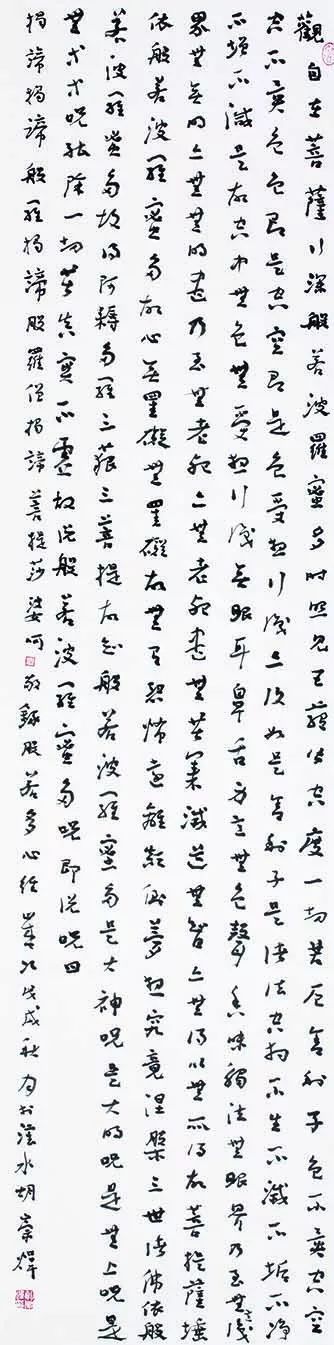 觀自在菩薩行深般若波羅蜜多時照見五蘊皆空度一切苦厄舍利子色不異空空
不異色色即是空空即是色受想行識亦復如是舍利子是諸法空相不生不滅不垢不淨
不增不減是故空中無色無受想行識無眼耳鼻舌身意無色聲香味觸法無眼界乃至無意識
界無無明亦無無明盡乃至無老死亦無老死盡無苦集滅道無智亦無得以無所得故菩提薩埵
依般若波羅蜜多故心無罣礙無罣礙故無有恐怖遠離顛倒夢想究竟涅槃三世諸佛依般
若波羅蜜多故得阿耨多羅三藐三菩提故知般若波羅蜜多是大神咒是大明咒是無上咒是
無等等咒能除一切苦真實不虛故說般若波羅蜜多咒即說咒曰
揭諦揭諦般羅揭諦般羅僧揭諦菩提莎婆呵 敬錄般若多心經 歲次戊戌秋於滏水胡崇煒